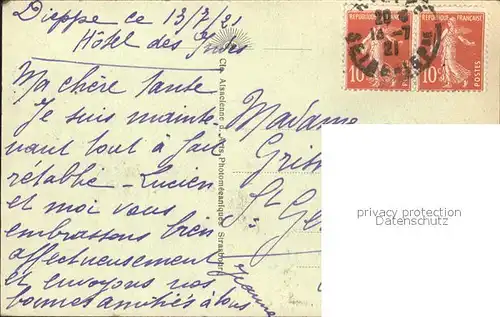 Dieppe ce 13/7/21
Hôtel des Indes
Ma chère tante
Je suis mainte
nant tout à fait
rétablie - Lucien
et moi vous
embrassons bien
affectueusement
et envoyons nos
bonnes amitiés à tous
Jeanne
Cie Alsacienne d. Arts Photomécaniques Strasbourg
Madame
Gris
St Ge
20
13-7
21
10c
POSTES
10c
POSTES
privacy protection
Datenschutz